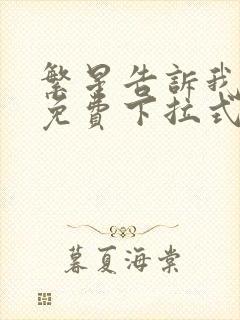 繁星告訴我
免費下拉式
暮夏海棠